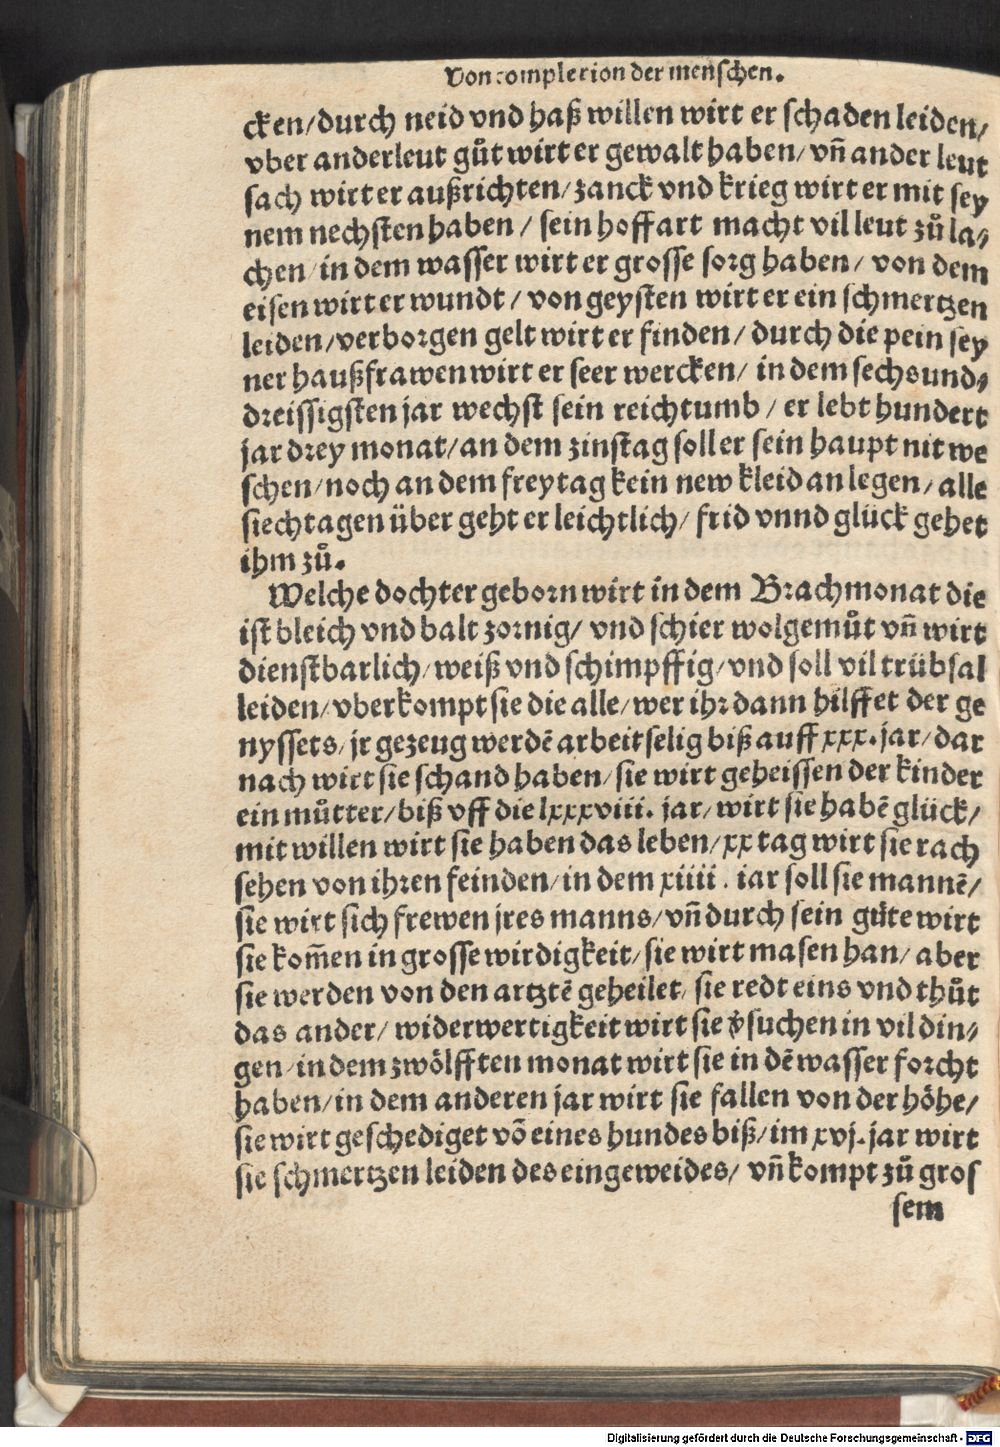 Von complexion der menschen.
cken/durch neid vnd haß willen wirt er schaden leiden/
vber anderleut gůt wirt er gewalt haben/ vñ ander leut
sach wirt er außrichten/ zanck vnd krieg wirt er mit sey
nem nechsten haben / sein hoffart macht vil leut zů la⸗
chen/in dem wasser wirt er grosse sorg haben/ von dem
eisen wirt er wundt / von geysten wirt er ein schmertzen
leiden/verborgen gelt wirt er finden/ durch die pein sey
ner haußfrawen wirt er seer wercken/ in dem sechsund⸗
dreissigsten jar wechst sein reichtumb / er lebt hundert
jar drey monat/an dem zinstag soll er sein haupt nit we
schen/noch an dem freytag kein new kleid an legen/ alle
siechtagen über geht er leichtlich/ frid vnnd glück gehet
ihm zů.
Welche dochter geborn wirt in dem Brachmonat die
ist bleich vnd balt zornig/ vnd schier wolgemůt vñ wirt
dienstbarlich/weiß vnd schimpffig/vnd soll vil trübsal
leiden/vberkompt sie die alle/wer ihr dann hilffet der ge
nyssets/jr gezeug werdẽ arbeitselig biß auff xxx. jar/dar
nach wirt sie schand haben/sie wirt geheissen der kinder
ein můtter/biß vff die lxxxviii. jar/wirt sie habẽ glück/
mit willen wirt sie haben das leben/xx tag wirt sie rach
sehen von ihren feinden/in dem xiiii. iar soll sie mannẽ/
sie wirt sich frewen jres manns/vñ durch sein gůte wirt
sie kom̃en in grosse wirdigkeit/sie wirt masen han/ aber
sie werden von den artztẽ geheilet/ sie redt eins vnd thůt
das ander/ widerwertigkeit wirt sie ꝟsuchen in vil din⸗
gen/in dem zwölfften monat wirt sie in dẽ wasser forcht
haben/in dem anderen jar wirt sie fallen von der höhe/
sie wirt geschediget võ eines hundes biß/im xvj. jar wirt
sie schmertzen leiden des eingeweides/ vñ kompt zů gros
sem
Digitalisierung gefördert durch die Deutsche Forschungsgemeinschaft - DFG